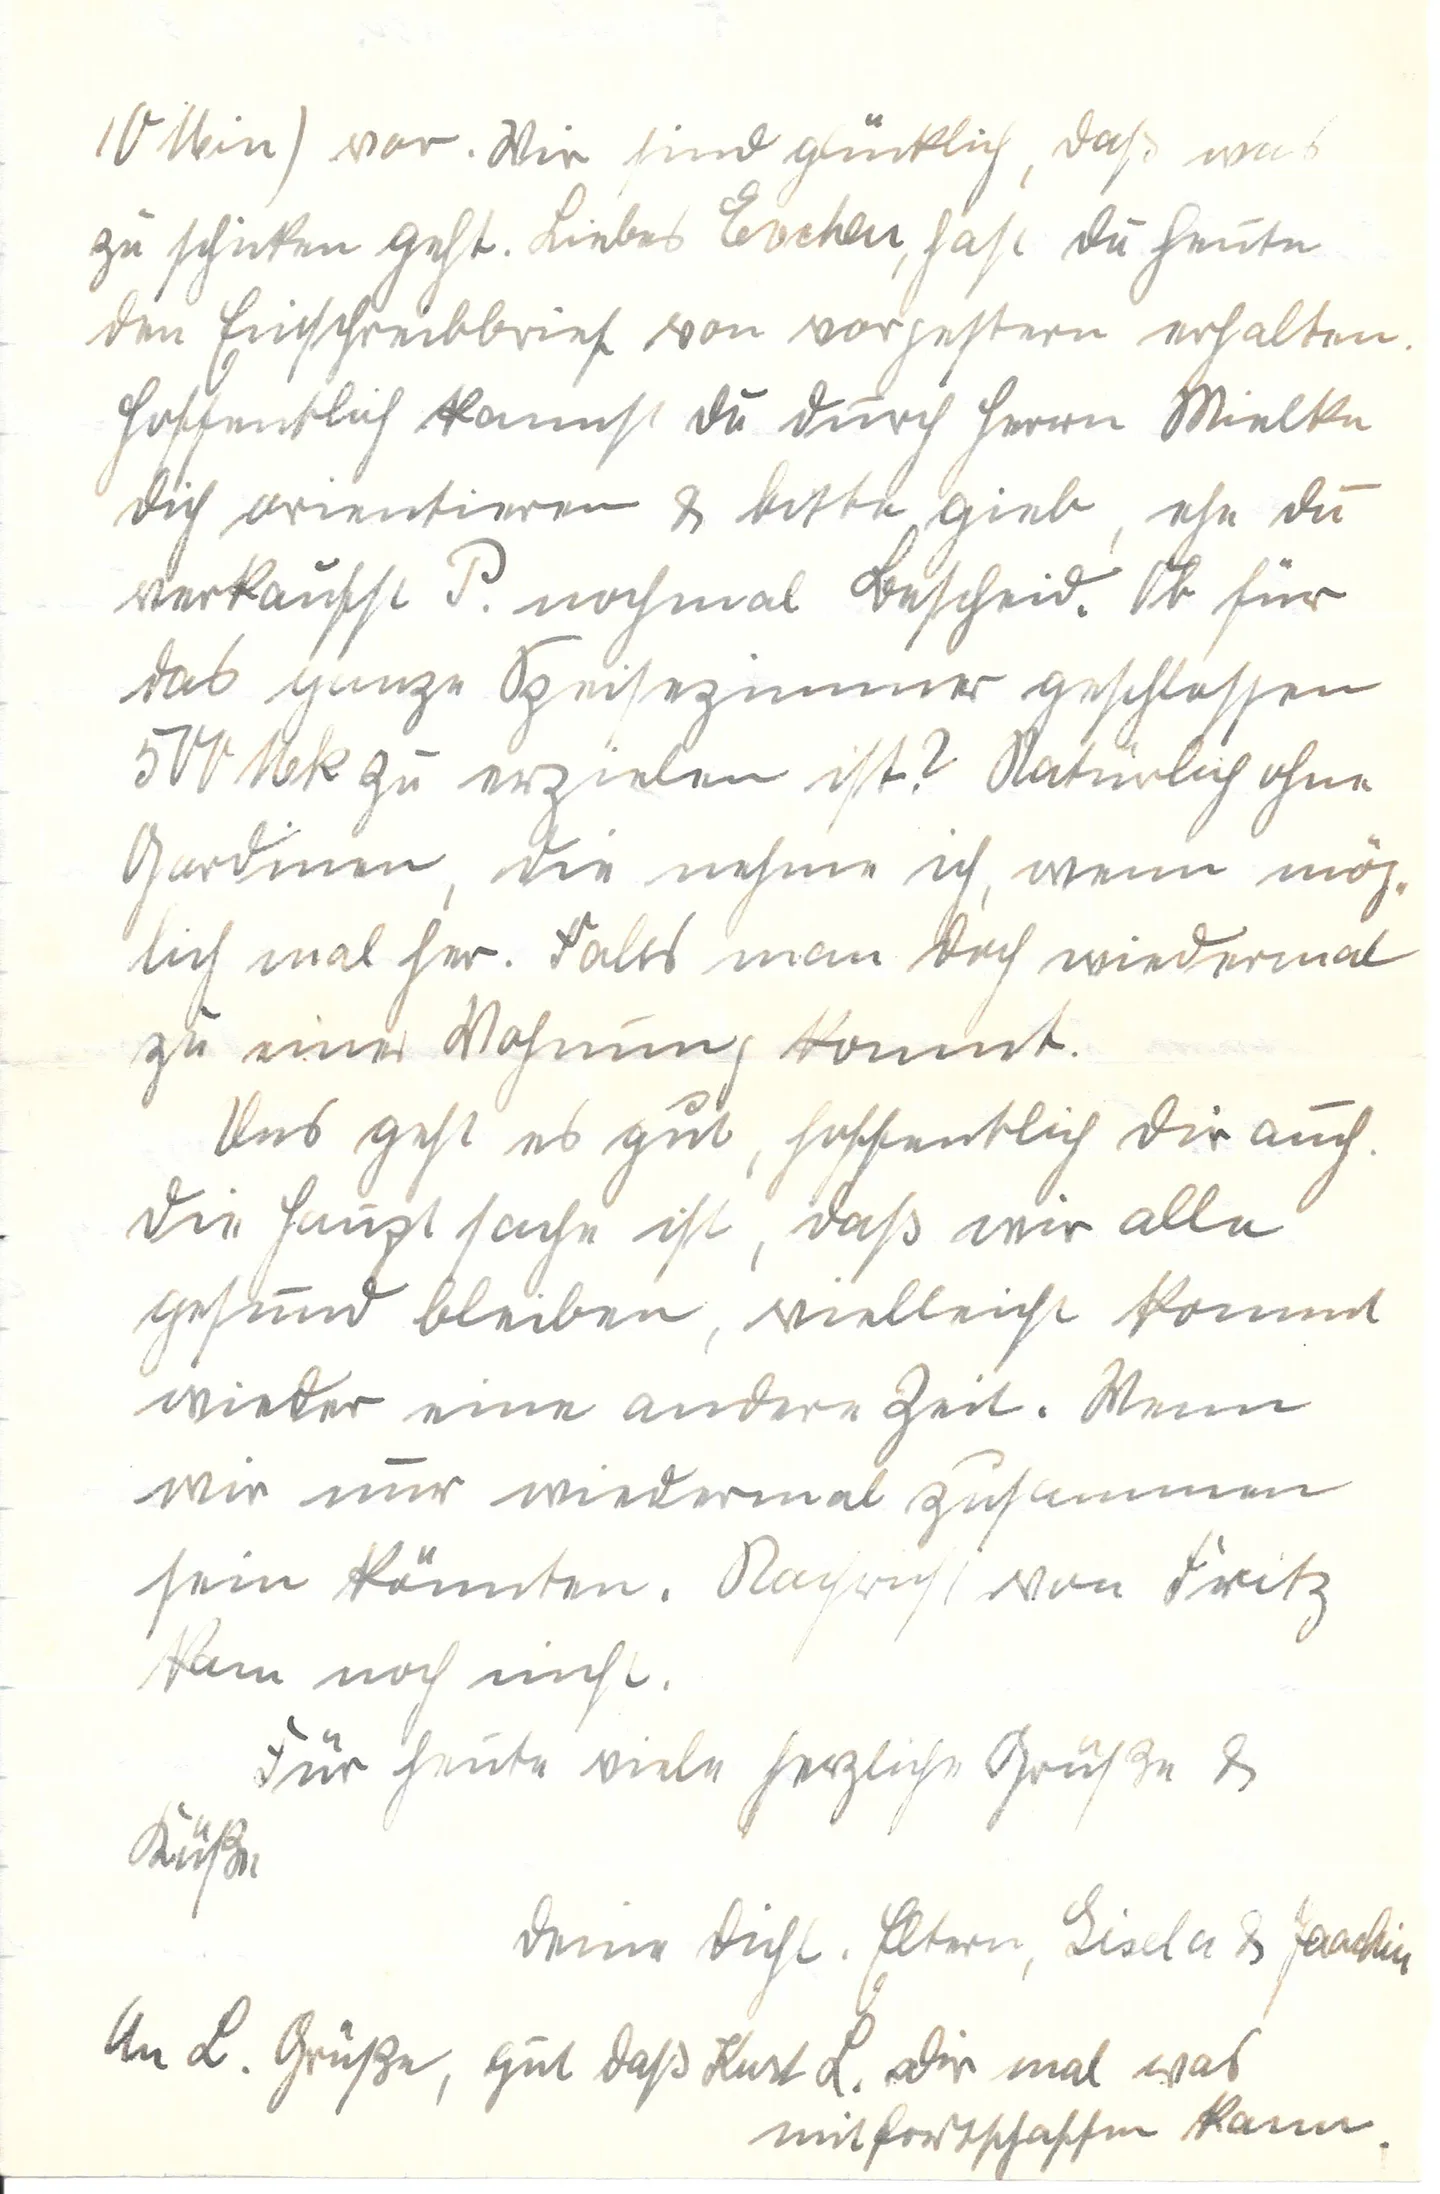 10 Min) vor. Wir sind glücklich, daß was
zu schicken geht. Liebes Evchen, hast du heute
den Einschreibbrief von vorgestern erhalten.
Hoffentlich kannst du durch Herrn Mielke
dich orientieren & bitte gieb, ehe du
verkaufst P. nochmal Bescheid. Ob für
das ganze Speisezimmer geschlossen
500 Mk zu erzielen ist? Natürlich ohne
Gardinen, die nehme ich, wenn mög-
lich mal her. Falls man doch wiedermal
zu einer Wohnung kommt.
Uns geht es gut, hoffentlich dir auch.
Die Hauptsache ist, daß wir alle
gesund bleiben, vielleicht kommt
wieder eine andere Zeit. Wenn
wir nur wiedermal zusammen
sein könnten. Nachricht von Fritz
kam noch nicht.
Für heute viele herzliche Grüße &
Küße
deine dichl. Eltern, Gisela & Joachim
An L. Grüße, gut daß Kurt L. dir mal was
mit fortschaffen kann.